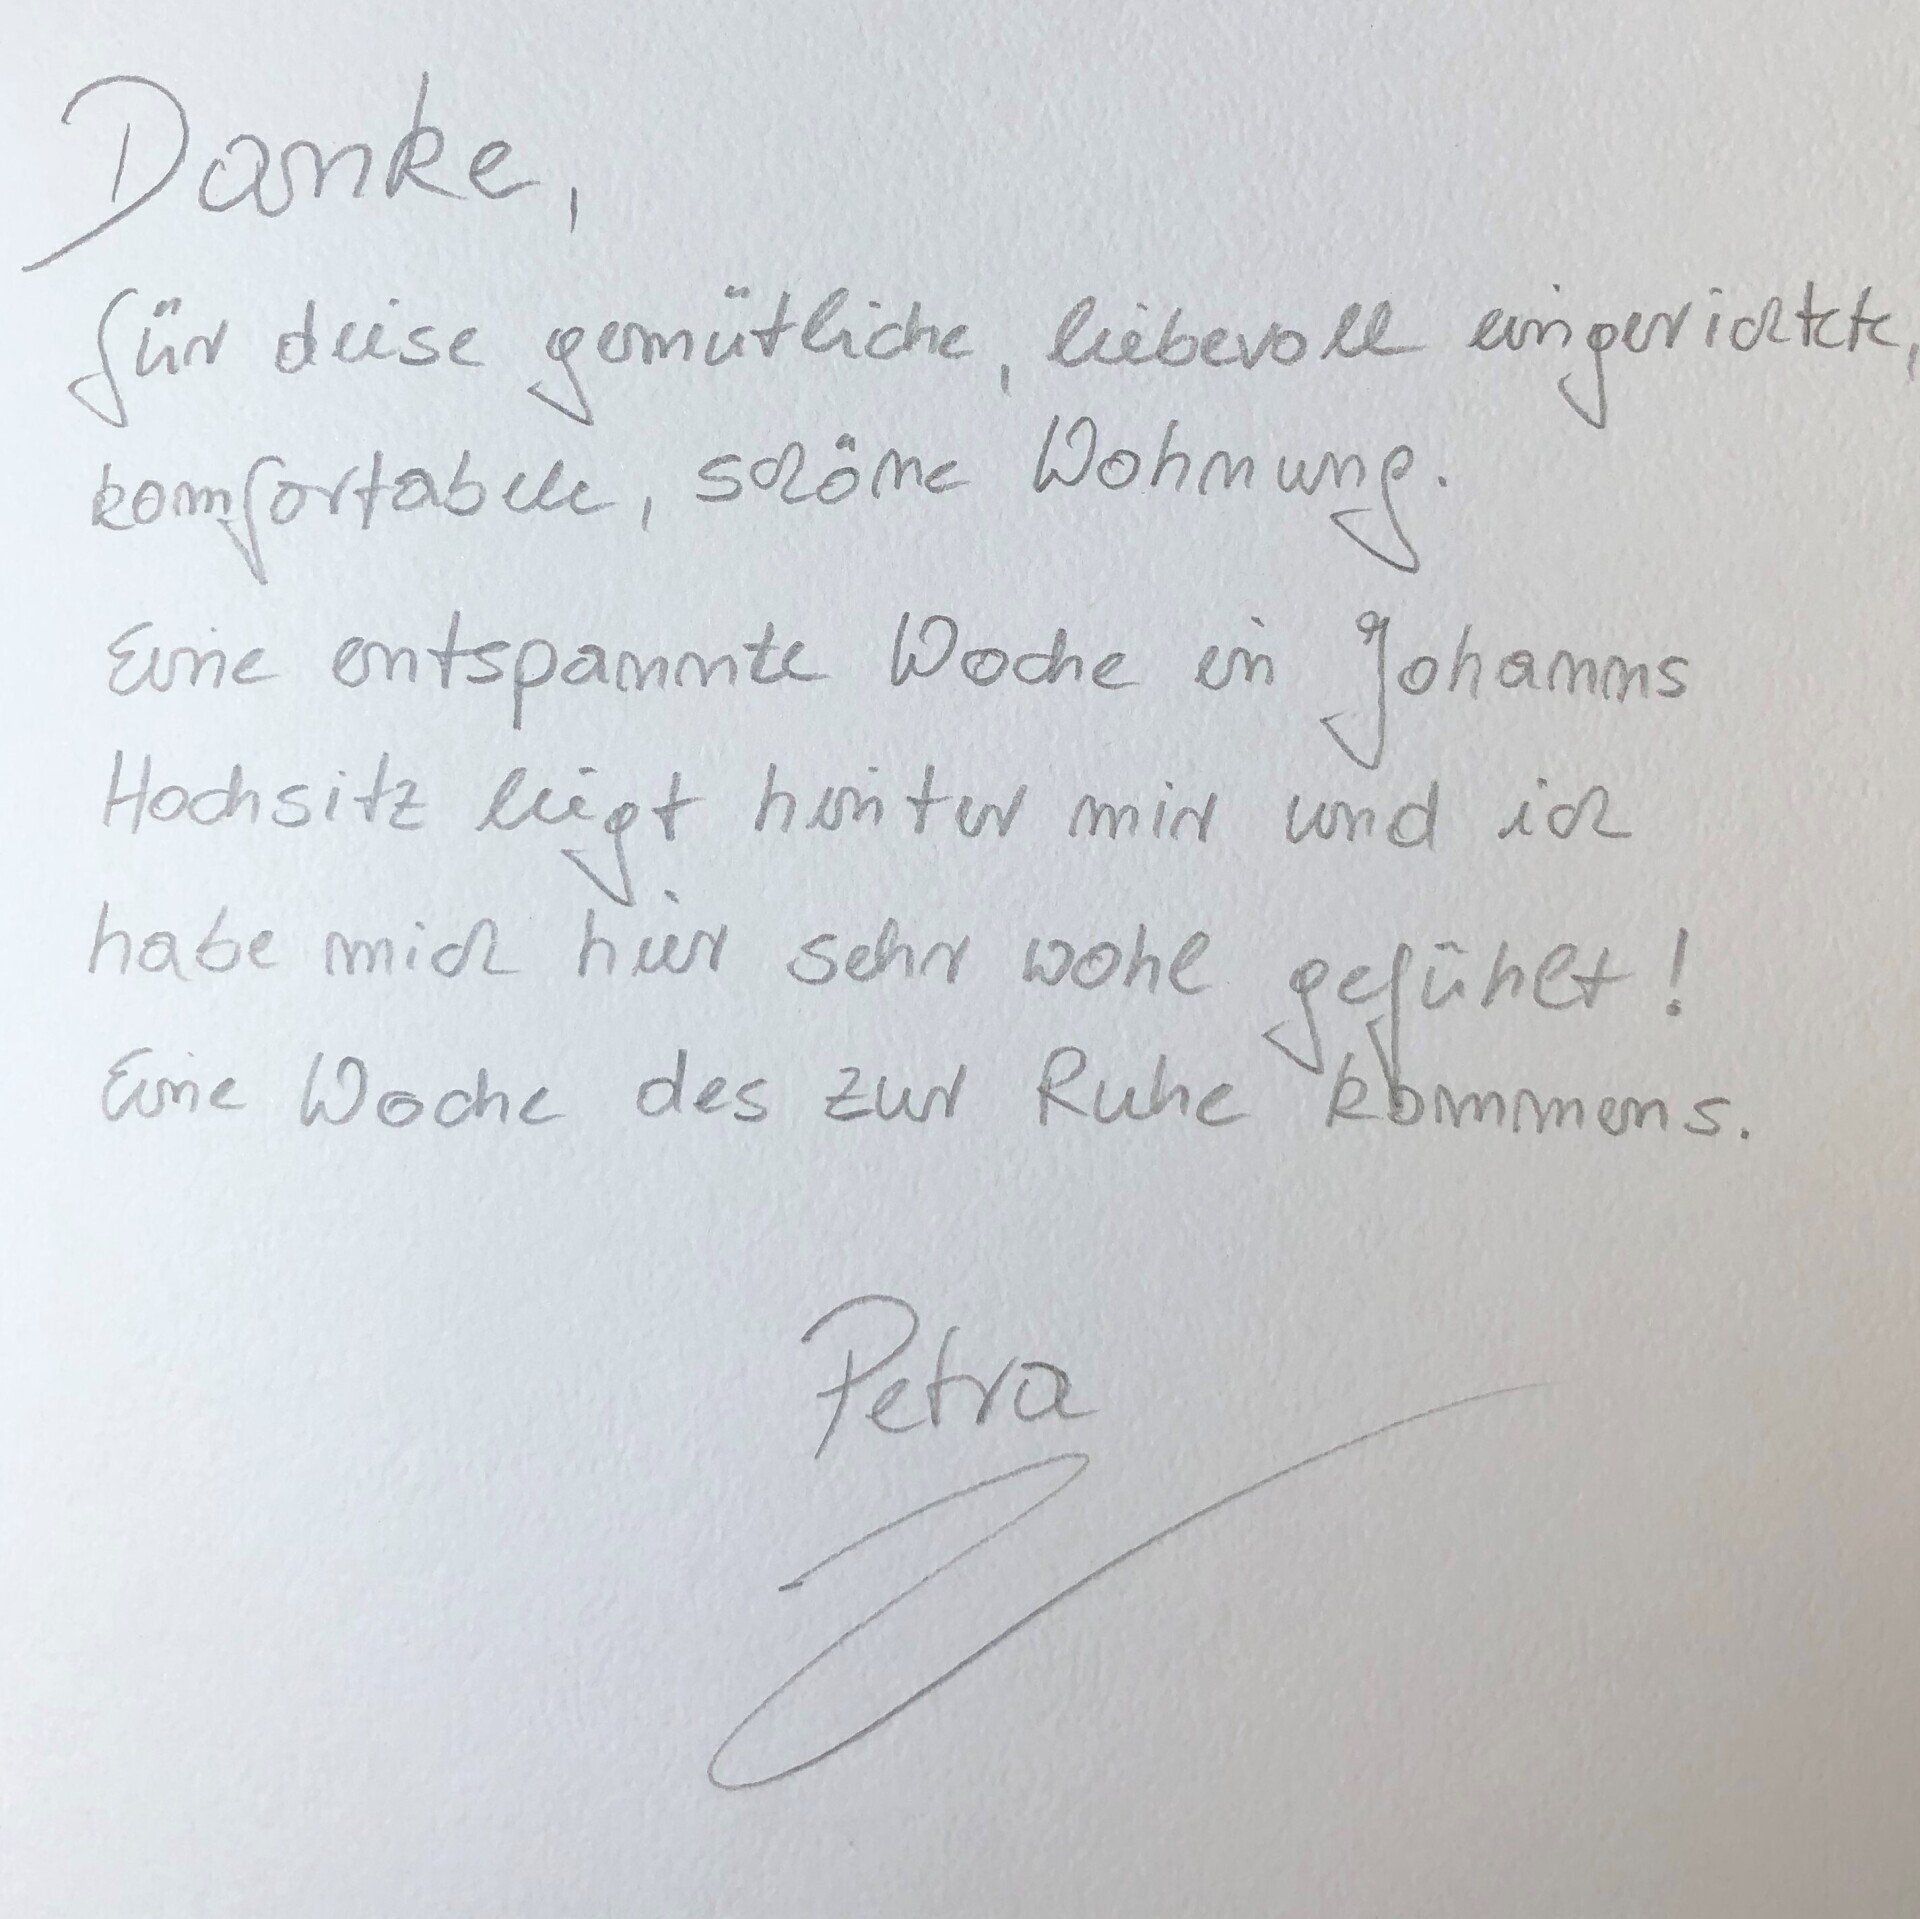 Danke,
für diese gemütliche, liebevoll eingerichtete,
komfortabele, schöne Wohnung.
Eine entspannte Woche in Johanns
Hochsitz liegt hinter mir und ich
habe mich hier sehr wohl gefühlt!
Eine Woche des zur Ruhe kommens.
Petra